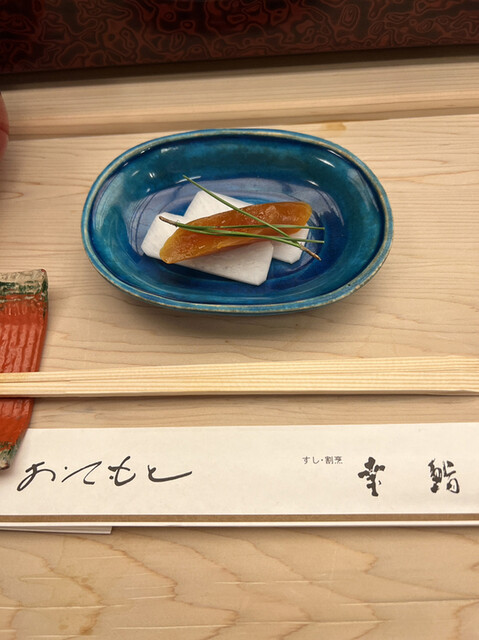 おてもと
すし・割烹
幸鮨